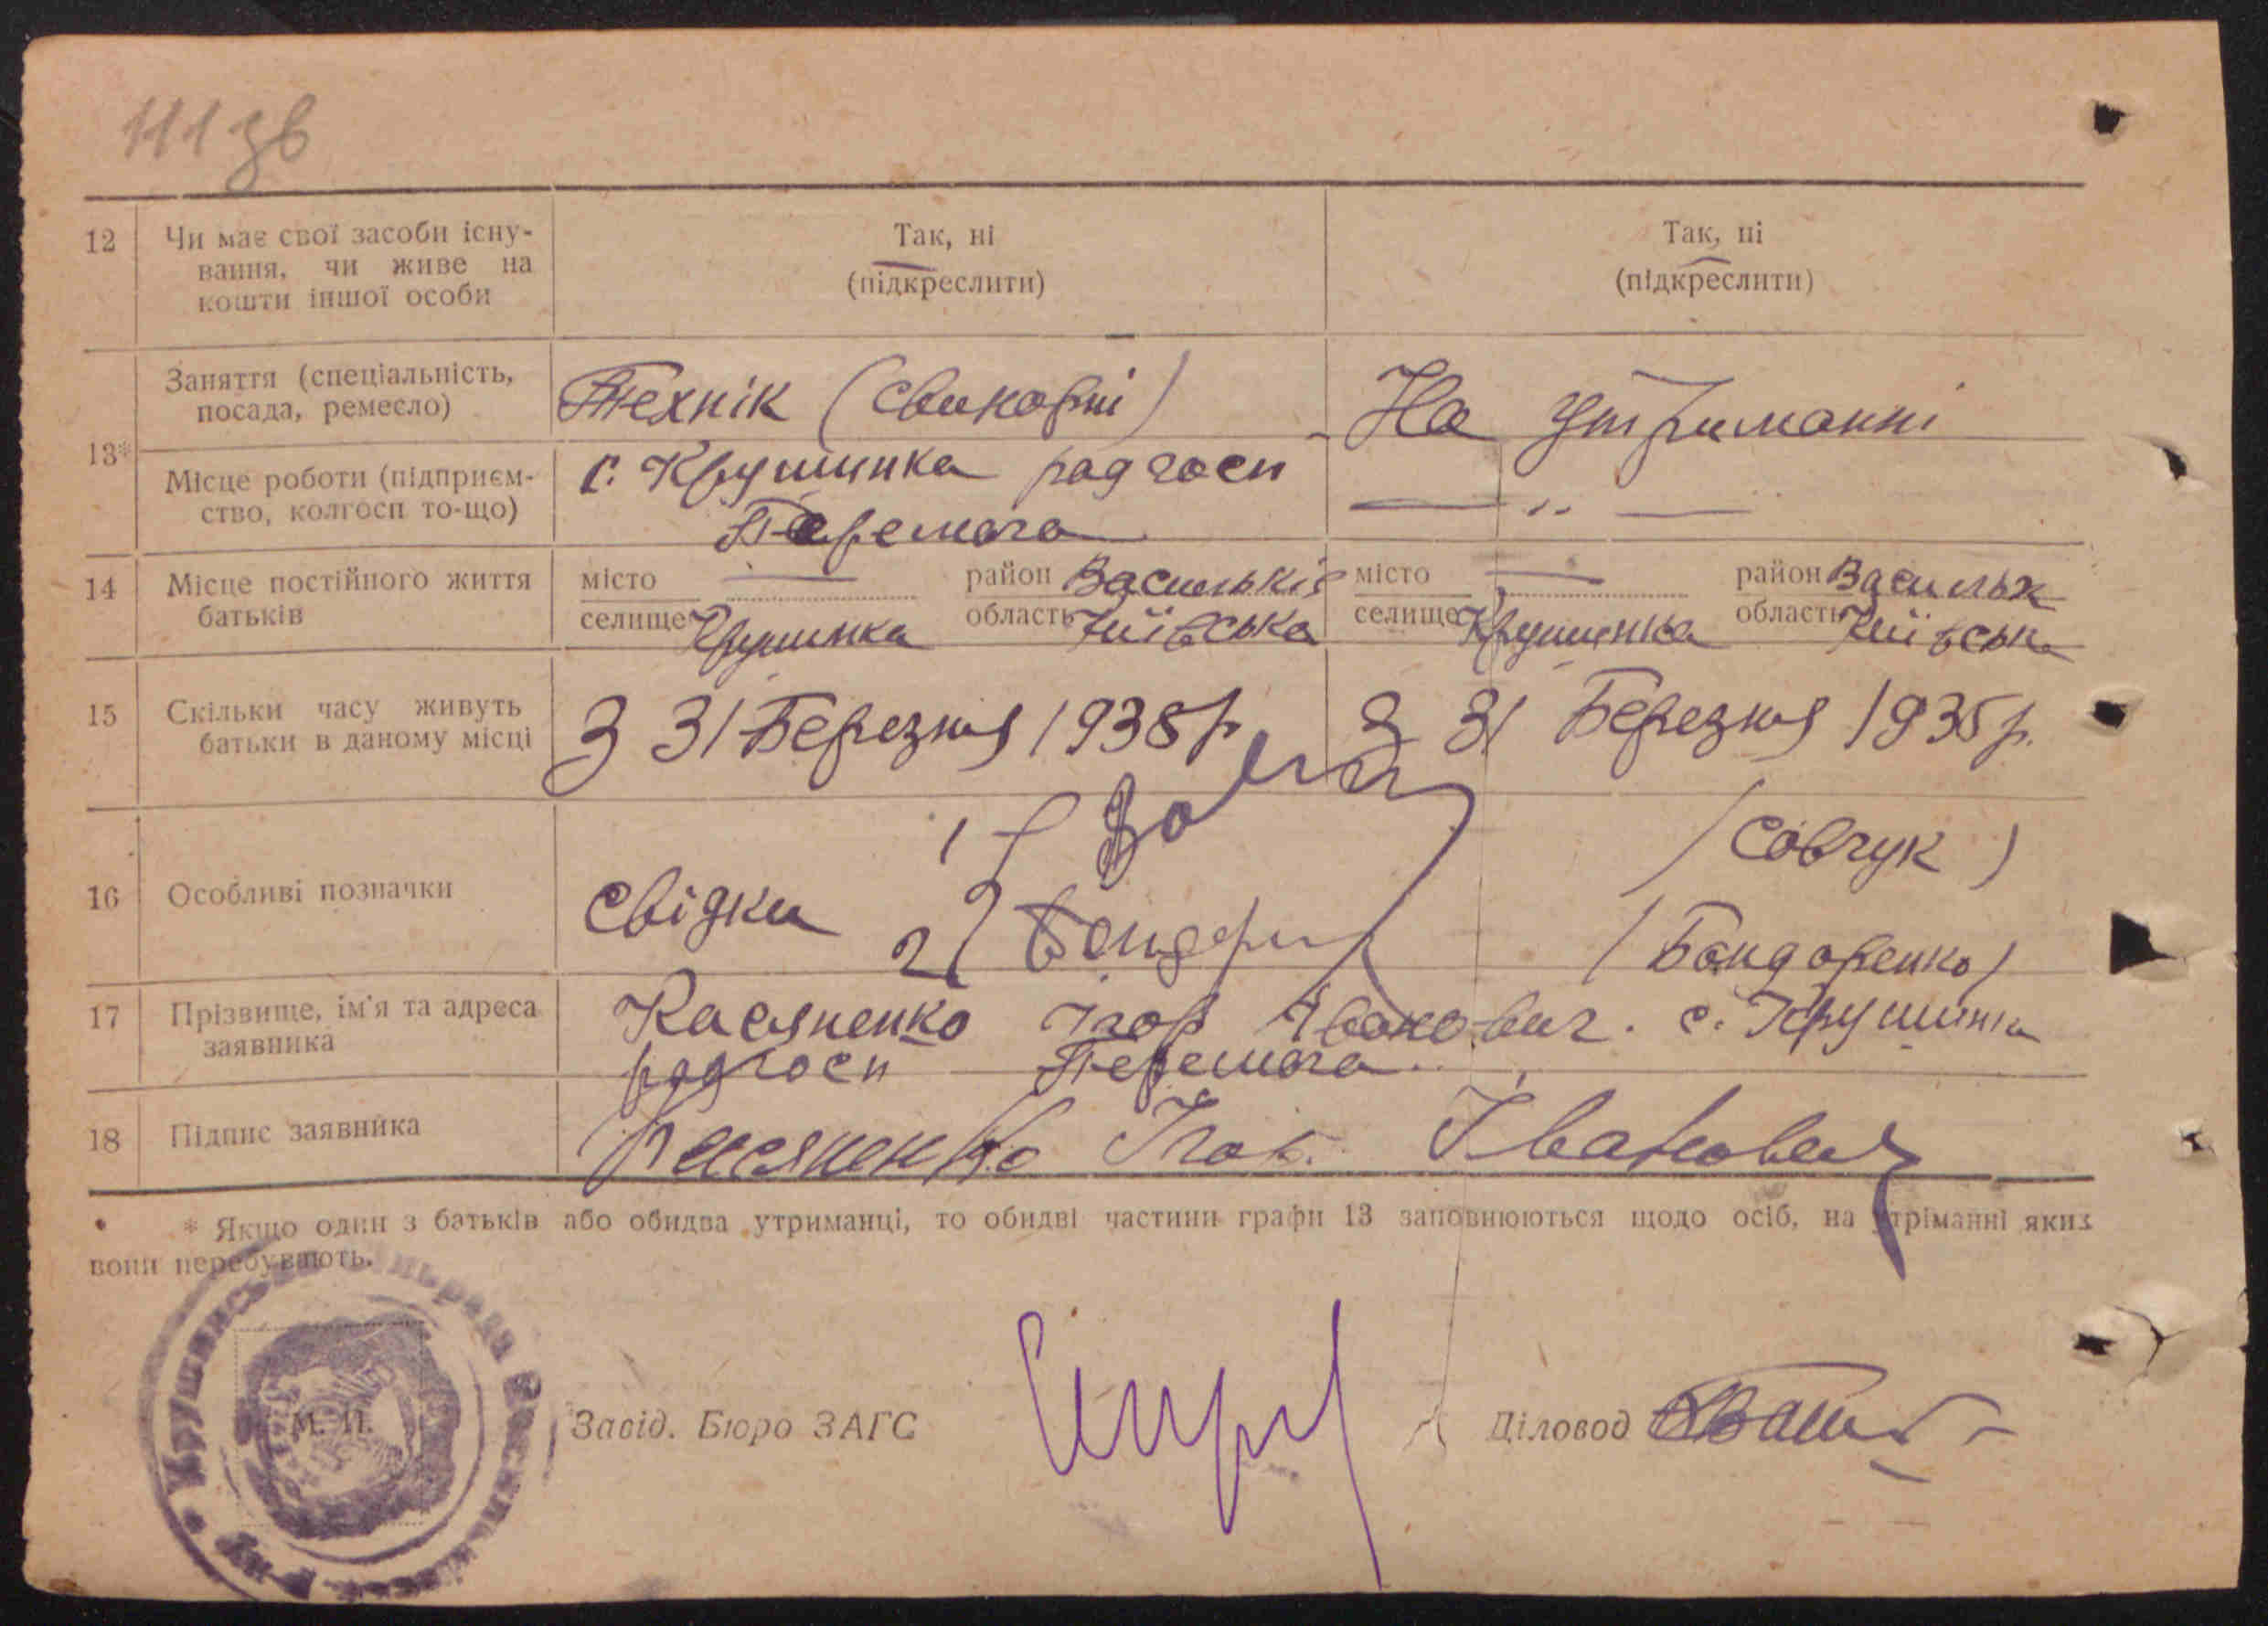 111 зв
12 Чи має свої засоби існу-
вання, чи живе на
кошти іншої особи
Так, ні
(підкреслити)
Так, ні
(підкреслити)
13*
Заняття (спеціальність,
посада, ремесло)
Технік
На утриманні
Місце роботи (підприєм-
ство, колгосп то-що)
с. Крушинка радгосп
Перемога
— ,, —
14 Місце постійного життя
батьків
місто — район Васильків
селище Крушинка область Київська
місто — район Васильк
селище Крушинка область Київськ
15 Скільки часу живуть
батьки в даному місці
З 31 Березня 1938 р.
З 31 Березня 1935 р.
16 Особливі позначки
Свідки
1)
(Совчук)
2)
(Бондаренко)
17 Прізвище, ім'я та адреса
заявника
Касяненко Ігор Іванович. с. Крушинка
радгосп Перемога
18 Підпис заявника
Касяненко Ігор. Іванович
* Якщо один з батьків або обидва утриманці, то обидві частини графи 13 заповнюються щодо осіб, на утріманні яких
вони перебувають.
М. П.
Завід. Бюро ЗАГС
Діловод